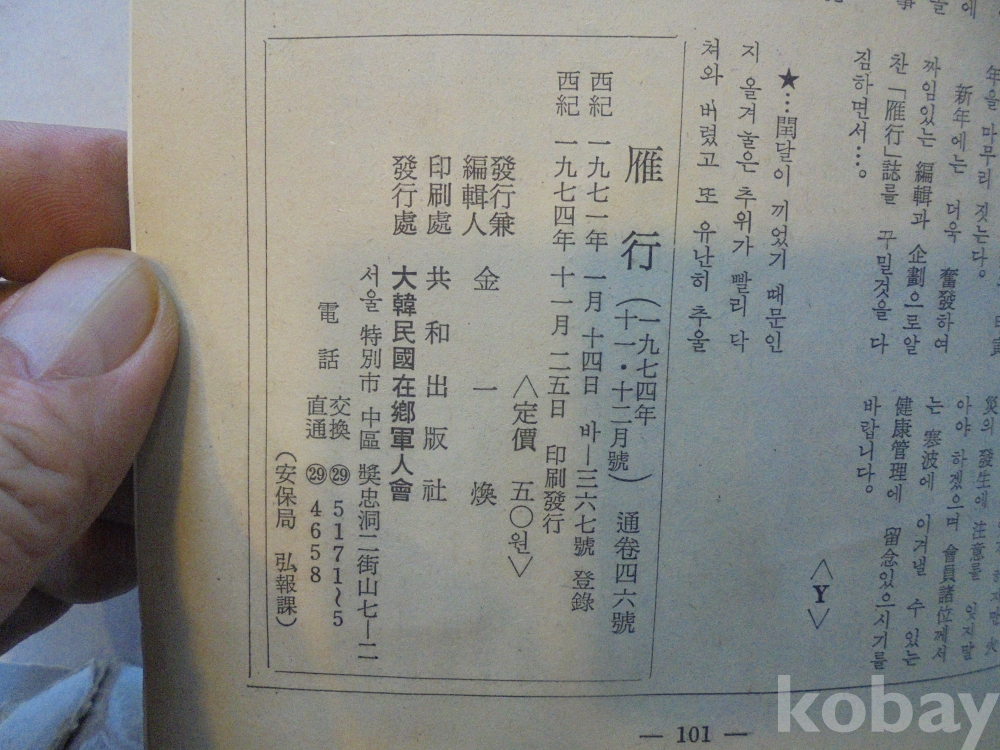 年을 마무리 짓는다。
新年에는 더욱 奮發하여
짜임있는 編輯과 企劃으로알
찬「雁行」誌를 꾸밀것을 다
짐하면서…。
★…閏달이 끼었기 때문인
지 올겨눌은 추위가 빨리 닥
쳐와 버렸고 또 유난히 추울
災의 發生에 注意를 잊지말
아야 하겠으며 會員諸位께서
는 寒波에 이겨낼 수 있는
健康管理에 留念있으시기를
바랍니다。
〈Y〉
雁行 (一九七四年 十一·十二月號) 通卷四六號
西紀 一九七一年 一月 十四日 바—三六七號 登錄
西紀 一九七四年 十一月 二五日 印刷發行
〈定價 五〇원〉
發行兼
編輯人 金一煥
印刷處 共和出版社
發行處 大韓民國在鄕軍人會
서울 特別市 中區 奬忠洞二街山七—二
電話 交換 ㉙ 5171~5
直通 ㉙ 4658
(安保局 弘報課)
— 101 —
kobay